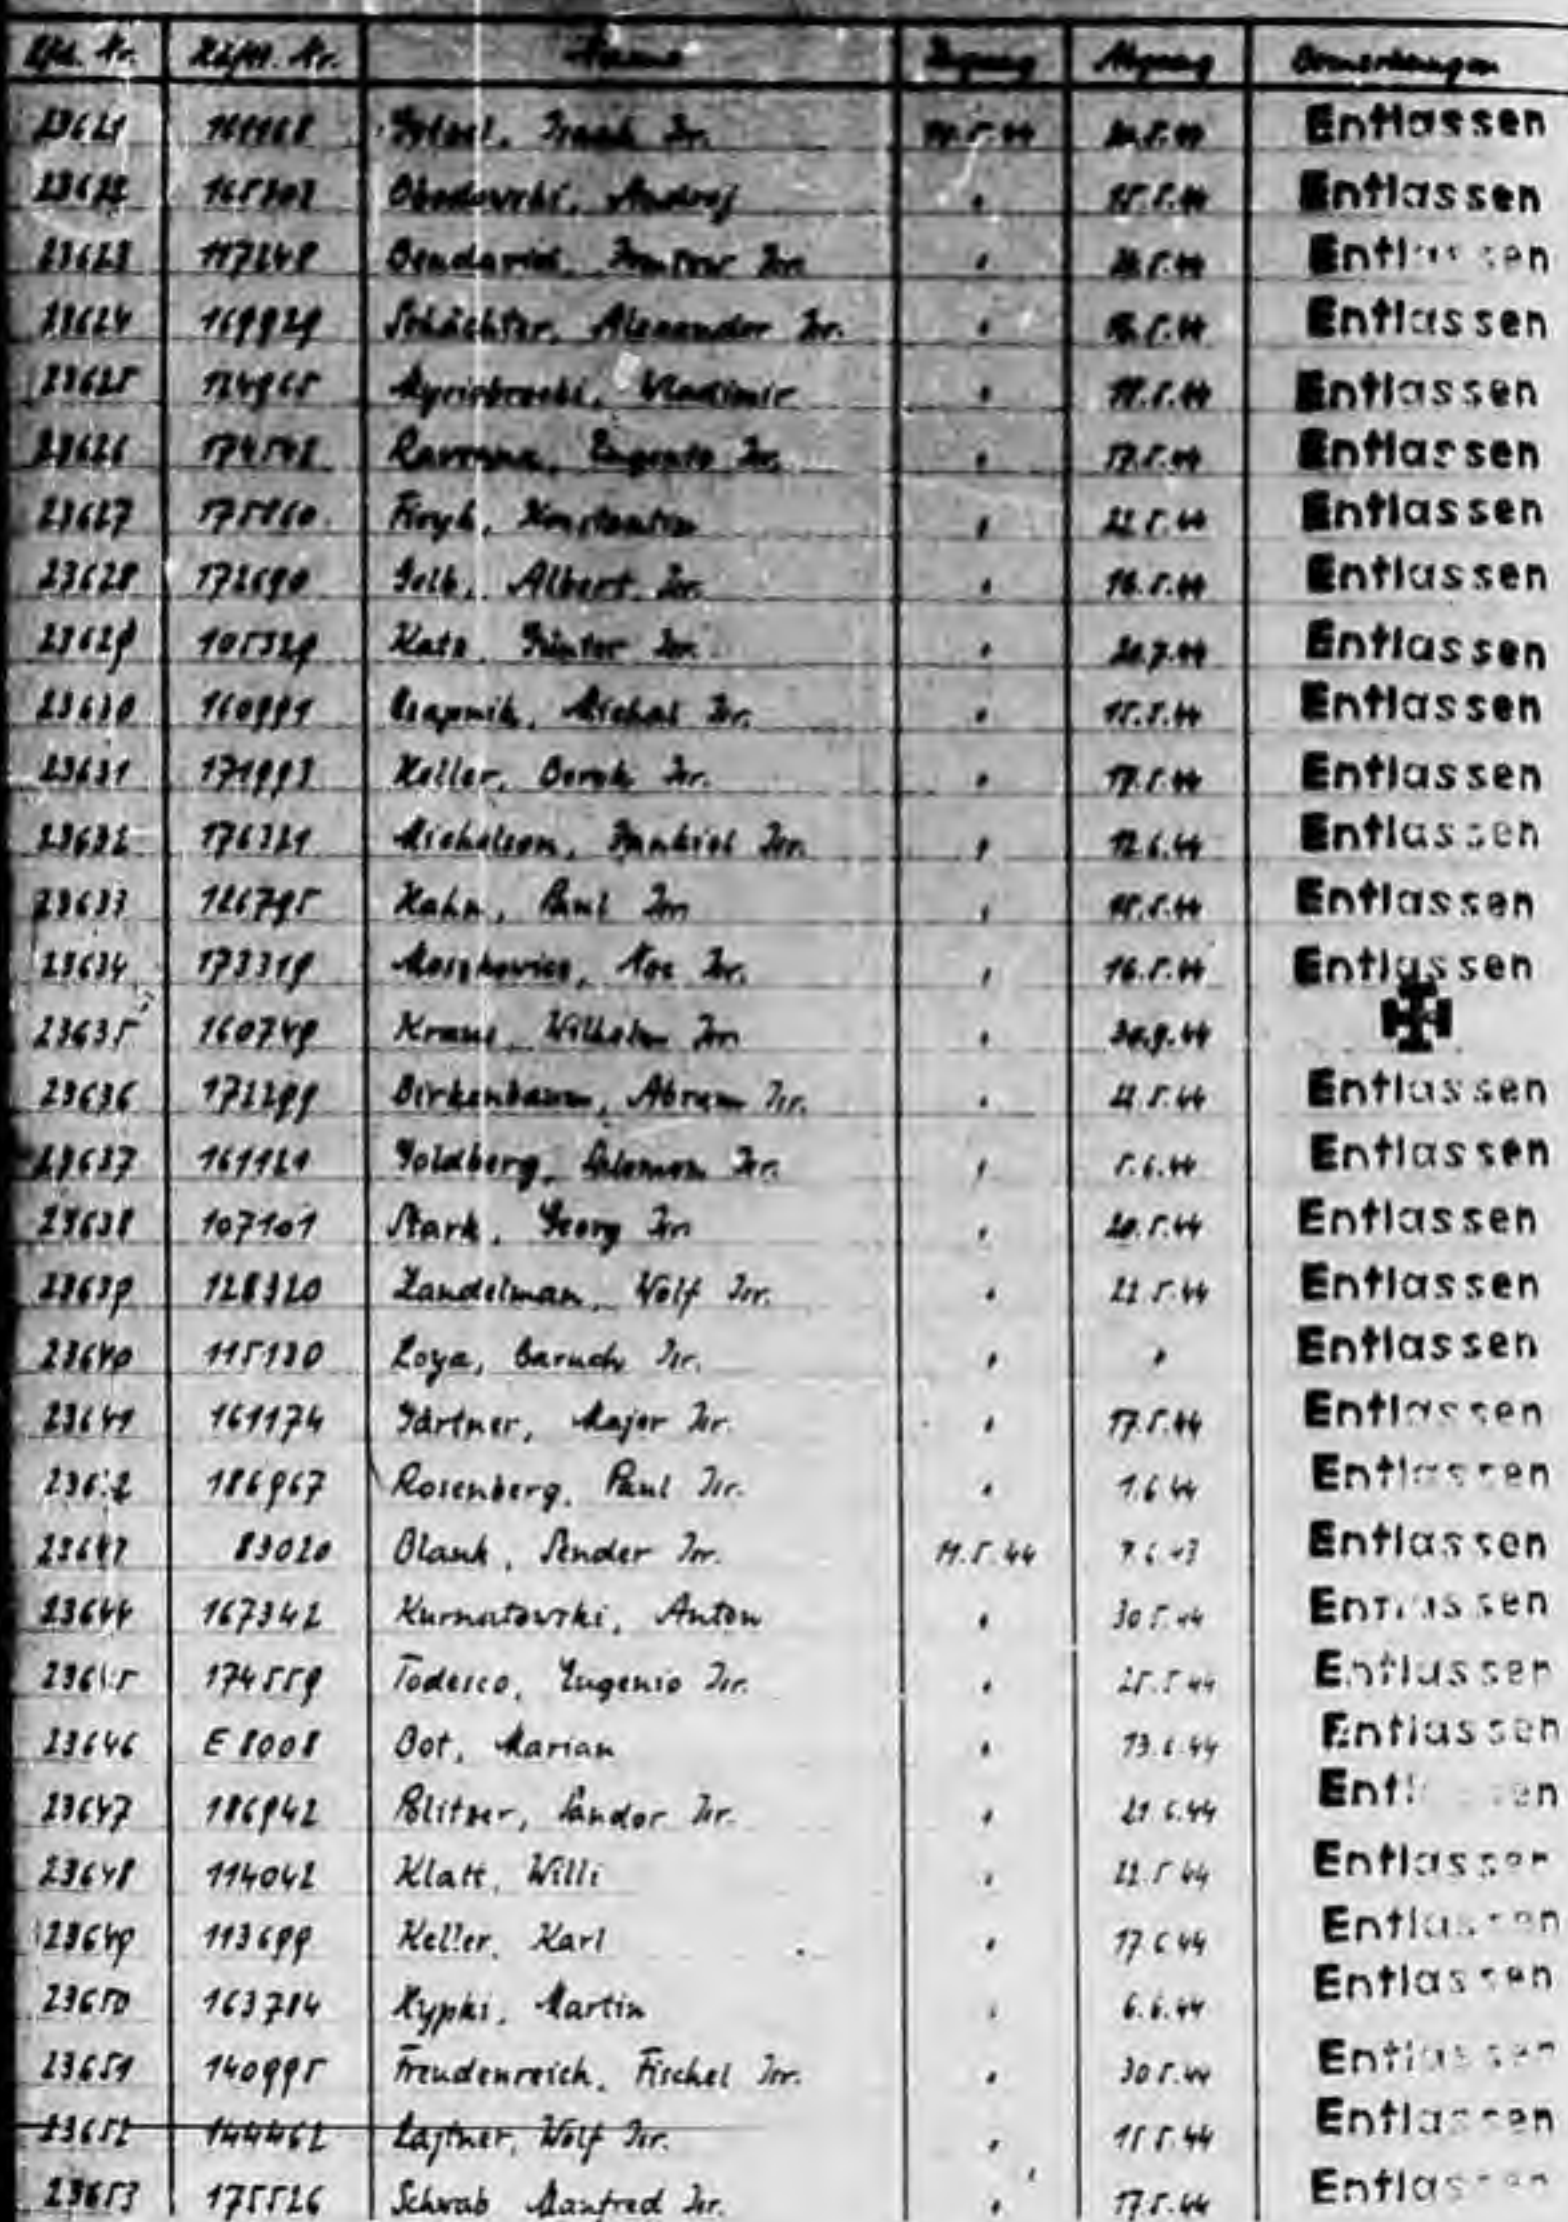 Lfd. Nr. Häftl. Nr. Name Zugang Abgang Bemerkungen
23621 Isr. Entlassen
23622 Obodowski, Andrej " 15.5.44 Entlassen
23623 117248 Isr. " Entlassen
23624 169929 Schächter, Alexander Isr. " Entlassen
23625 Wladimir " Entlassen
23626 Eugenio Isr. " 17.5.44 Entlassen
23627 Konstantin " 22.5.44 Entlassen
23628 172690 Gelb, Albert Isr. " 16.5.44 Entlassen
23629 105329 Katz, Günter Isr. " Entlassen
23630 160991 Czapnik, Michal Isr. " 15.5.44 Entlassen
23631 171993 Keller, Berek Isr. " 17.5.44 Entlassen
23632 176321 Michelson, Jankiel Isr. " 12.6.44 Entlassen
23633 126795 Kahn, Paul Isr. " Entlassen
23634 173319 Moszkowicz, Noe Isr. " 16.5.44 Entlassen
23635 160749 Kraus, Wilhelm Isr. "
23636 172299 Birkenbaum, Abram Isr. " 22.5.44 Entlassen
23637 161121 Goldberg, Salomon Isr. " 5.6.44 Entlassen
23638 107101 Stark, Georg Isr. " 20.5.44 Entlassen
23639 128320 Zandelman, Wolf Isr. " 22.5.44 Entlassen
23640 115130 Loya, Baruch Isr. " " Entlassen
23641 161174 Gärtner, Major Isr. " 17.5.44 Entlassen
186967 Rosenberg, Paul Isr. " 1.6.44 Entlassen
23643 83020 Blank, Sender Isr. 11.5.44 Entlassen
23644 167342 Kurnatowski, Anton " 30.5.44 Entlassen
174559 Todesco, Eugenio Isr. " 25.5.44 Entlassen
23646 E 8008 Bot, Marian " 13.6.44 Entlassen
23647 186942 Blitzer, Sandor Isr. " 21.6.44
23648 114042 Klatt, Willi " 22.5.44 Entlassen
23649 113699 Keller, Karl " 17.6.44 Entlassen
23650 163784 Kypki, Martin " 6.6.44 Entlassen
23651 140995 Freudenreich, Fischel Isr. " 30.5.44 Entlassen
23652 144462 Lajtner, Wolf Isr. " 15.5.44 Entlassen
23653 175526 Schwab Manfred Isr. " 17.5.44 Entlassen